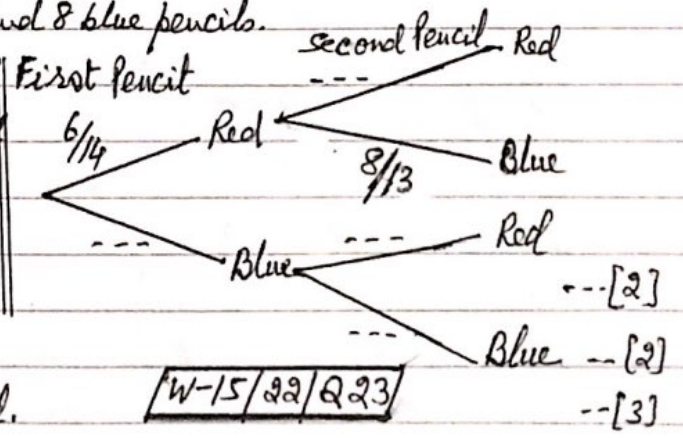 nd 8 blue pencils.
First Pencil
second Pencil
Red
---
6/14
Red
8/13
Blue
---
---
Red
Blue
---[2]
---
Blue --[2]
W-15/22/Q23
--[3]